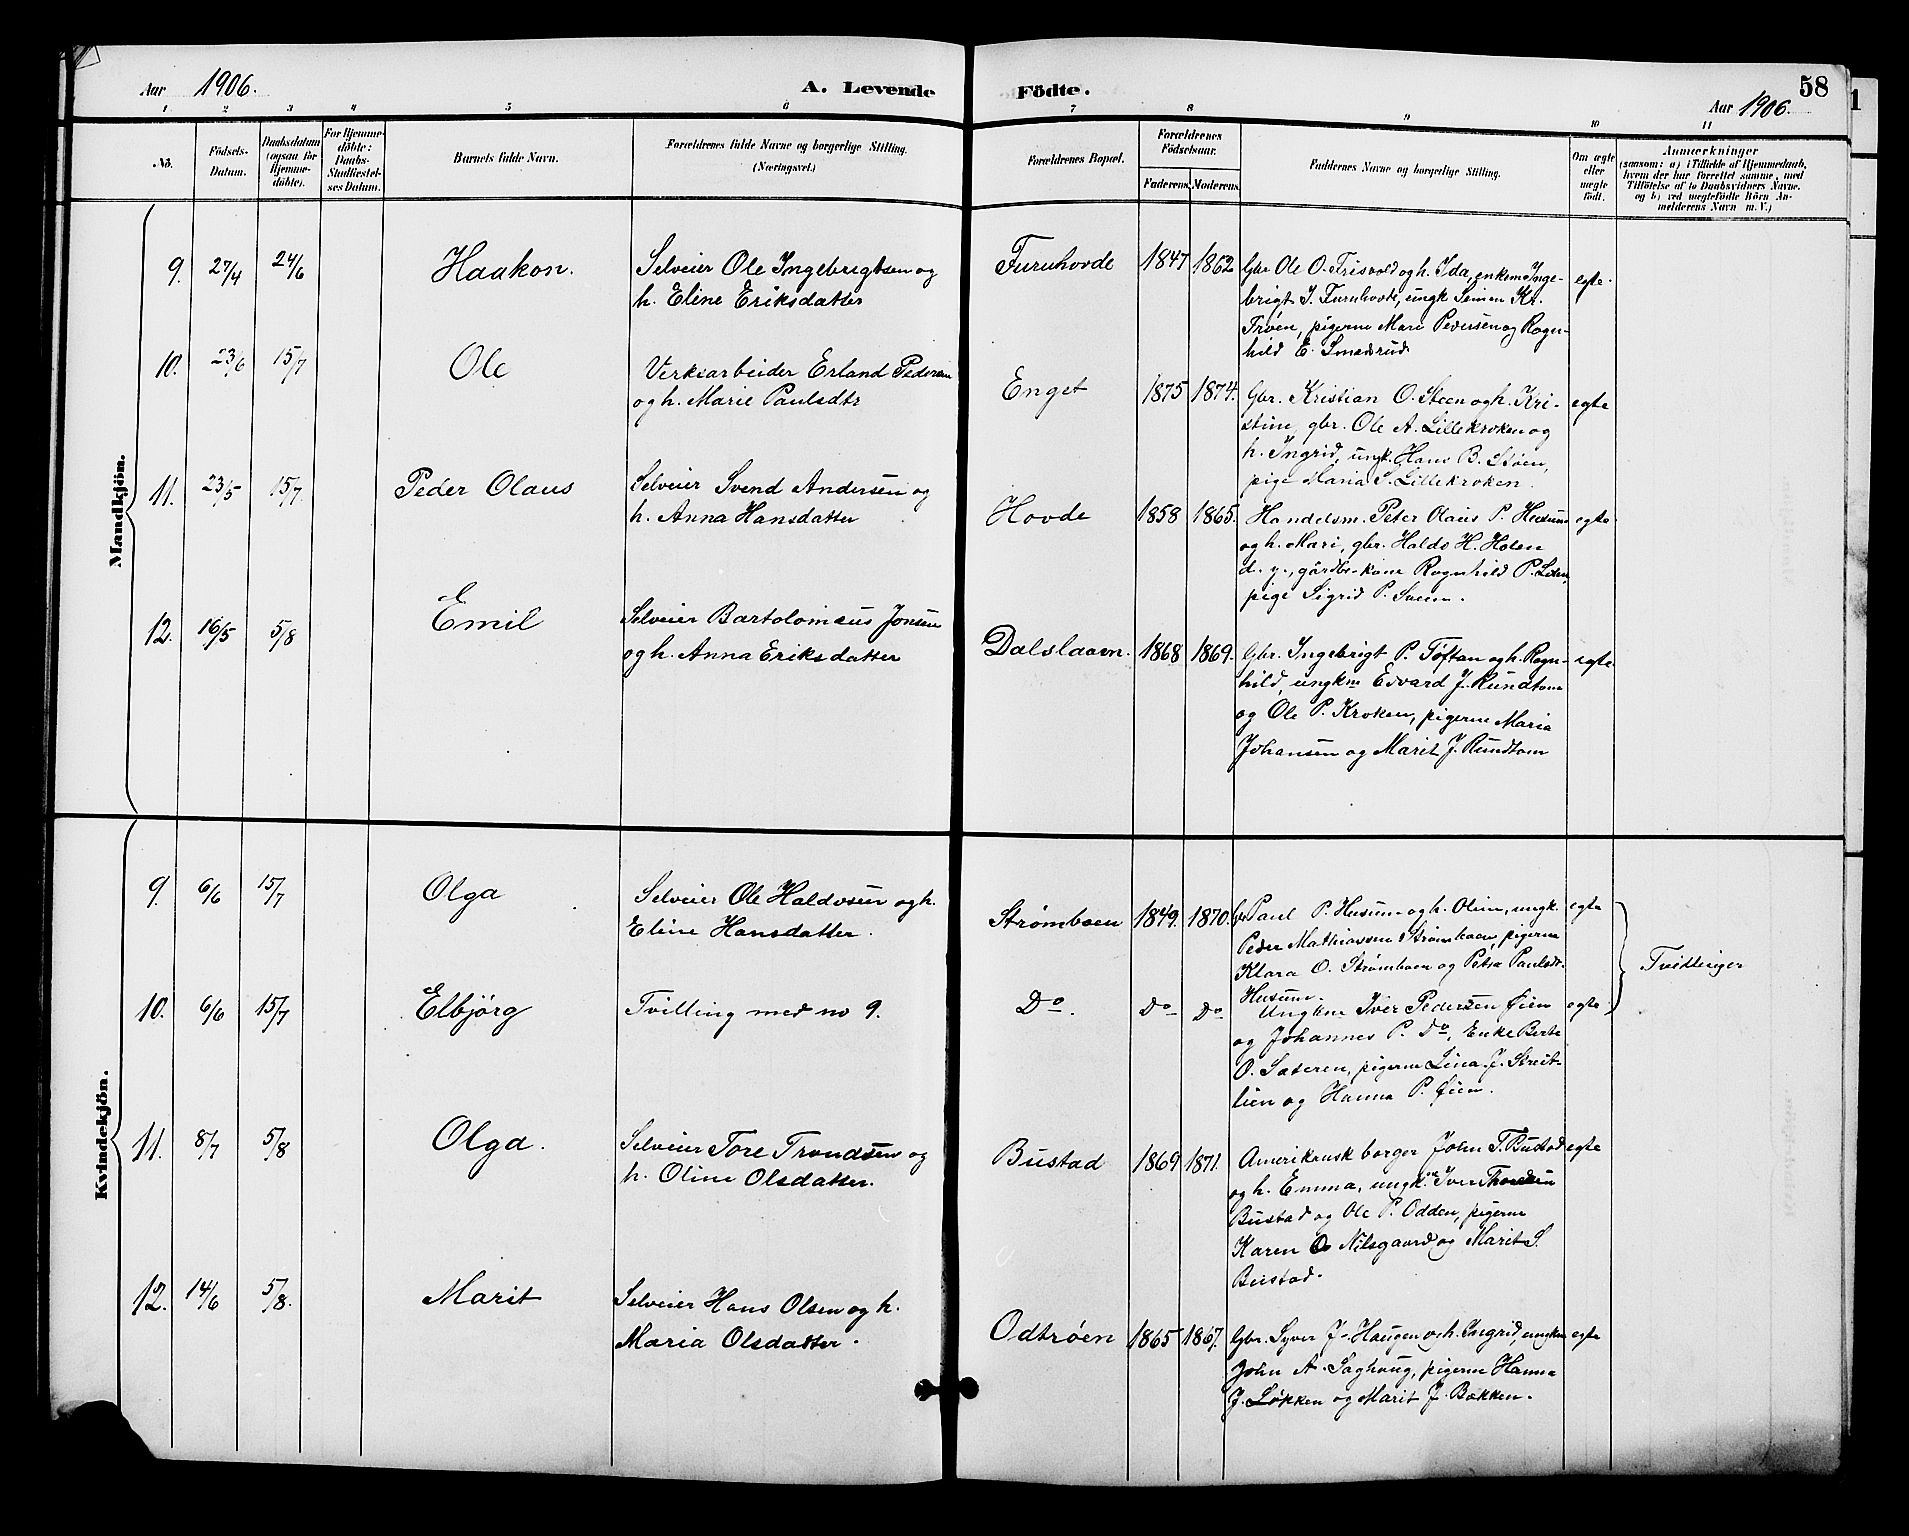 Aar 1906.
A. Levende Födte.
58
Aar 1906.
1 2 3 4 5 6 7 8 9 10 11
No.
Födsels-
Datum.
Daabsdatum
(ogsaa for
Hjemme-
döbte).
For Hjemme-
döbte:
Daabs-
Stadfæstel-
ses Datum.
Barnets fulde Navn.
Forældrenes fulde Navne og borgerlige Stilling.
(Næringsvei.)
Forældrenes Bopæl.
Forældrenes
Födselsaar.
Faderens. Moderens.
Faddernes Navne og borgerlige Stilling.
Om ægte
eller
uægte
födt.
Anmærkninger
(saasom: a) i Tilfælde af Hjemmedaab,
hvem der har forrettet samme, med
Tilföielse af to Daabsvidners Navne,
og b) ved uægtefödte Börn An-
melderens Navn m. V.)
Mandkjön.
9. 27/4 24/6 Haakon. Selveier Ole Ingebrigtsen og
h. Eline Eriksdatter
Furuhovde 1847 1862 Gbr. Ole O. Frisvold og h. Ida, enkem. Inge-
brigt I. Furuhovde, ungk Simen Kr.
Trøen, pigerne Mari Pedersen og Rogn-
hild E. Smedsrud.
egte.
10. 23/6 15/7 Ole Verksarbeider Erland Pedersen
og h. Marie Paulsdtr
Enget 1875 1874. Gbr. Kristian O. Steen og h. Kri-
stine, gbr. Ole A. Lillekroken og
h. Ingrid, ungk. Hans B. Støen,
pige Maria S. Lillekroken.
egte
11. 23/5 15/7. Peder Olaus Selveier Svend Andersen og
h. Anna Hansdatter
Hovde 1858 1865. Handelsm. Peter Olaus P. Husum
og h. Mari, gbr. Haldo H. Holen
d. y., gårdbr.kone Rognhild P.
pige Sigrid P.
egte
12. 16/5 5/8 Emil Selveier Bartolomæus Jonsen
og h. Anna Eriksdatter
Dalslaaen. 1868 1869. Gbr. Ingebrigt P. Tøftan og h. Rogn-
hild, ungkm Edvard J. Rundtom
og Ole P. Kroken, pigerne Maria
Johansen og Marit J. Rundtom
egte
Kvindekjön.
9. 6/6 15/7 Olga Selveier Ole Haldosen og h.
Eline Hansdatter.
Strømboen 1849. 1870. Gbr Paul P. Husum og h. Oline, ungk.
Peder Mathiassen Strømboen, pigerne
Klara O. Strømboen og Petra Paulsdt.
Husum.
egte
Tvillinger
10. 6/6 15/7 Elbjörg Tvilling med no 9.
Do. Do Do Ungkm Iver Pedersen Øien
og Johannes P. Do, Enke Berte
O. Sæteren, pigerne Lina J. Streit-
lien og Hanna P. Øien.
egte
11. 8/7 5/8 Olga. Selveier Tore Trondsen og
h. Oline Olsdatter.
Bustad 1869 1871. Amerikansk borger John T. Bustad
og h. Emma, ungk. Iver Thoresen
Bustad og Ole P. Odden, pigerne
Karen O Nilsgaard og Marit S.
Bustad.
egte
12. 14/6 5/8. Marit Selveier Hans Olsen og h.
Maria Olsdatter.
Odtrøen 1865 1867. Gbr. Syver J. Haugen og h. Ingrid, ungkm
John A. Saghaug, pigerne Hanna
J. Løkken og Marit J. Bækken.
egte